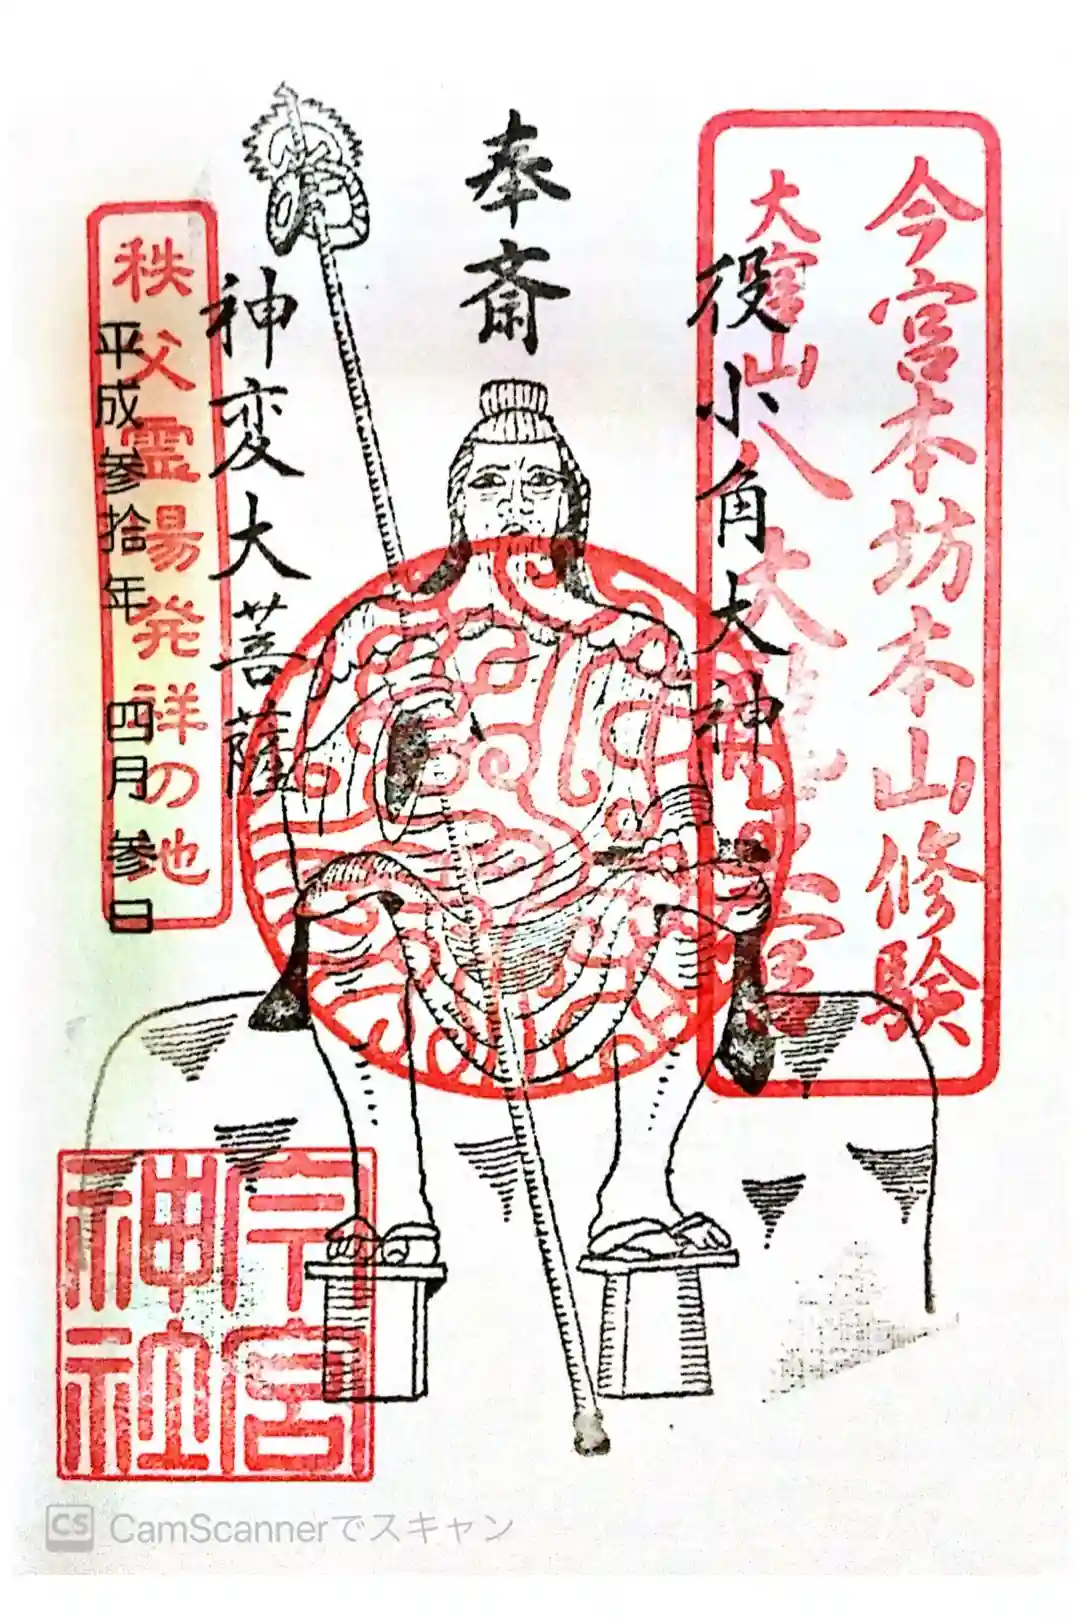 今宮本坊本山修験
大宮山八大龍王宮
役小角大神
奉斎
神変大菩薩
秩父霊場発祥の地
平成参拾年 四月参日
今宮神社
CS CamScannerでスキャン